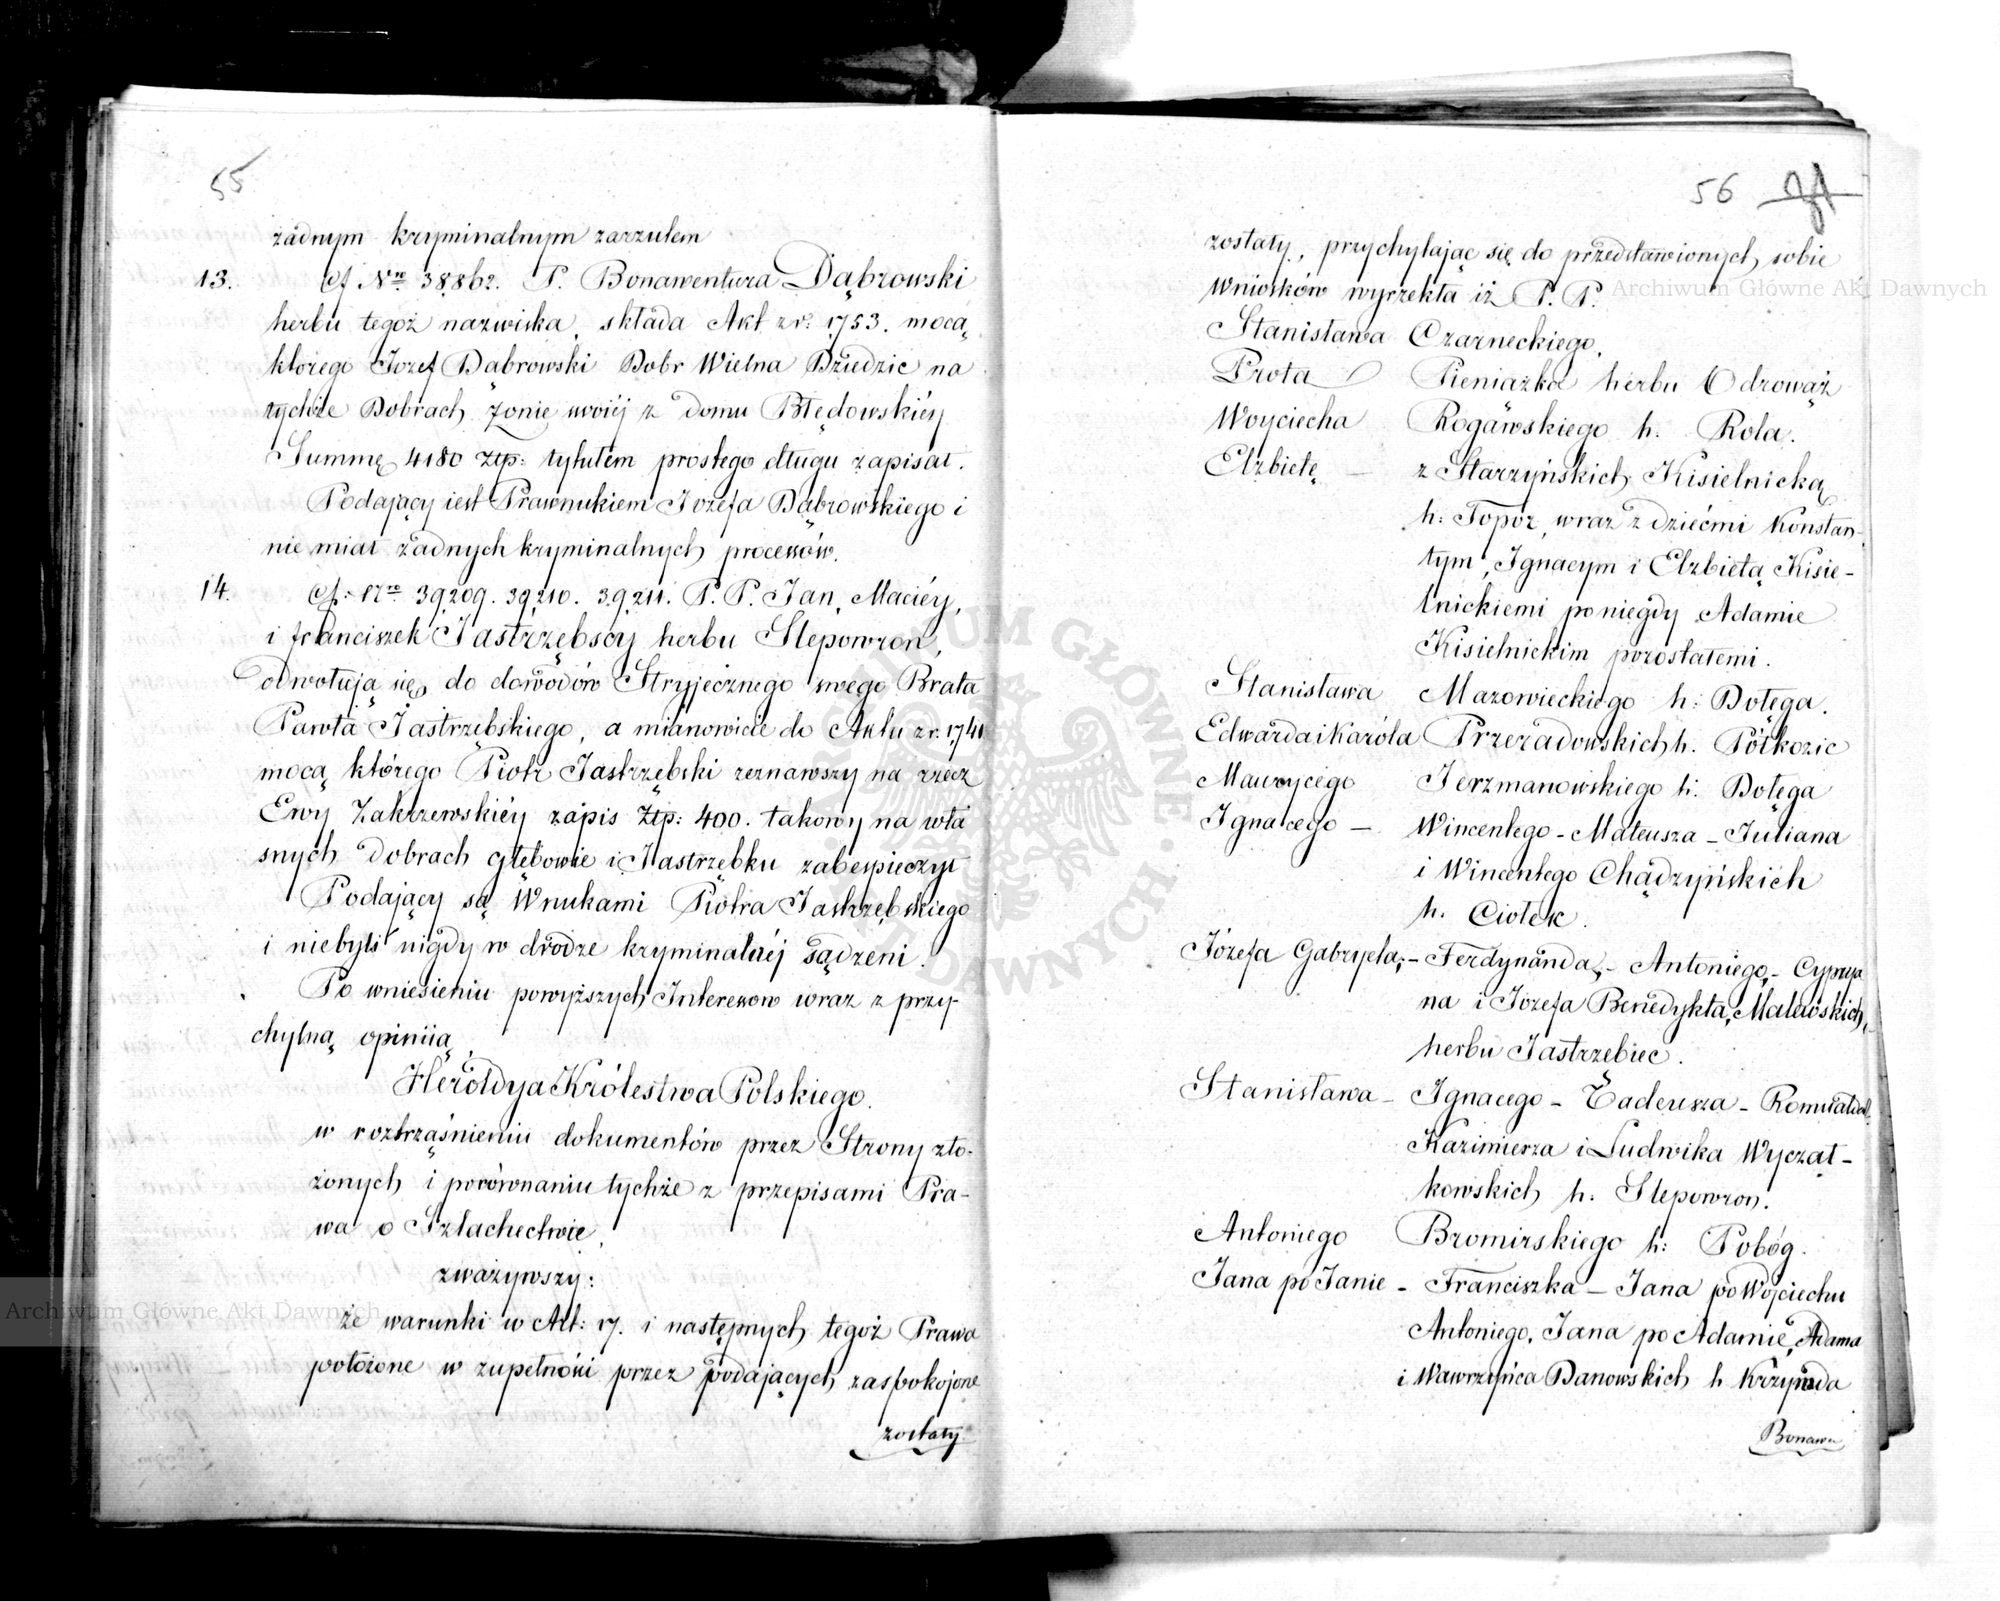 55
żadnym kryminalnym zarzutem
13. ad Nrm 38862. P. Bonawentura Dąbrowski
herbu tegoż nazwiska, składa Akt z r: 1753. mocą
ktorego Jozef Dąbrowski Dobr Wielna Dziedzic na
tychże Dobrach żonie swoiéy z domu Błędowskiéy
Summę 4180 złp: tytułem prostego długu zapisał.
Podaiący iest Prawnukiem Jozefa Dąbrowskiego i
nie miał żadnych kryminalnych processów.
14. 39209. 39210. 39211. P. P. Jan, Maciéy,
i franciszek Jastrzębscy herbu Slepowron,
odwołuią się do dowodów Stryjecznego swego Brata
Pawła Jastrzębskiego, a mianowicie do Aktu z r. 1741
mocą którego Piotr Jastrzębski zeznawszy na rzecz
Ewy Zakrzewskiéy zapis Złp: 400. takowy na wła
snych dobrach głębowie i Jastrzębku zabespieczył
Podający są Wnukami Piotra Jastrzębskiego
i niebyli nigdy w drodze kryminalnéj sądzeni.
Po wniesieniu powyższych Interessow wraz z przy-
chylną opiniią,
Heroldya Królestwa Polskiego.
w roztrząśnieniu dokumentów przez Strony zło-
żonych i porównaniu tychże z przepisami Pra-
wa o Szlachectwie,
zważywszy:
że warunki w Art: 17. i następnych tegoż Prawa
położone w zupełności przez podających zaspokojone
zostały
56
zostały, przychylając się do przedstawionych sobie
Wniosków wyrzekła iż P. P.
Stanisława Czarneckiego,
Prota Pieniążka herbu Odrowąż
Woyciecha Rogawskiego h. Rola.
Elżbietę – z Starzyńskich Kisielnicką
h: Topor, wraz z dziećmi Konstan-
tym, Ignacym i Elżbietą Kisie-
lnickiemi po niegdy Adamie
Kisielnickim pozostałemi.
Stanisława Mazowieckiego h: Dołęga.
Edwarda i Karóla Przeradowskich h. Półkozic
Maurycego Jerzmanowskiego h. Dołęga
Ignacego – Wincentego – Mateusza – Juliana
i Wincentego Chądzyńskich
h. Ciołek.
Józefa Gabryela, – Ferdynanda, – Antoniego, – Cyprya
na i Józefa Benedykta, Malewskich,
herbu Jastrzębiec.
Stanisława – Ignacego – Tadeusza – Romualda
Kazimierza i Ludwika Wyczał-
kowskich h. Slepowron.
Antoniego Bromirskiego h: Pobóg.
Jana po Janie – Franciszka – Jana po Wojciechu
Antoniego, Jana po Adamie, Adama
i Wawrzyńca Danowskich h Krzywda
Bonawe
Archiwum Główne Akt Dawnych
Archiwum Główne Akt Dawnych
ARCHIWUM GŁÓWNE AKT DAWNYCH